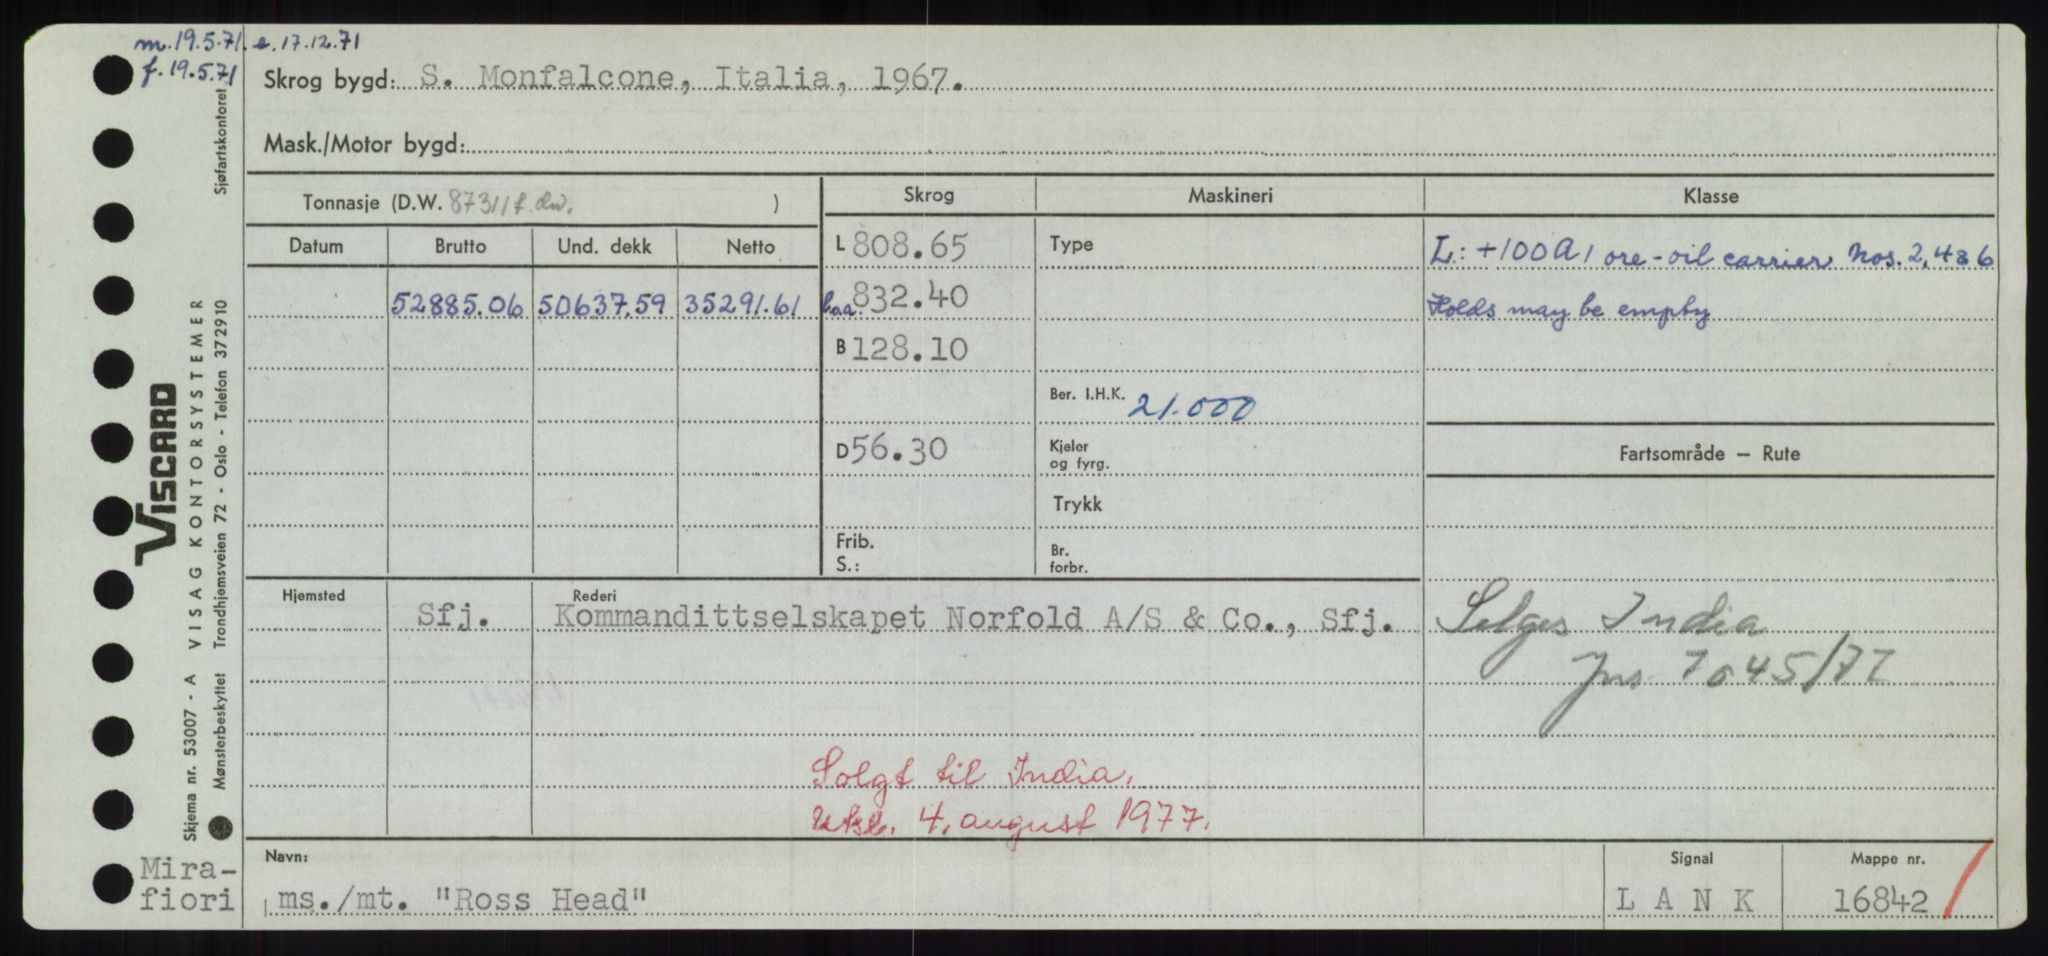 m. 19.5.71. e. 17.12.71
f. 19.5.71
Skrog bygd: S. Monfalcone, Italia, 1967.
Mask./Motor bygd:
Tonnasje (D.W. 87311 t. dw. )
Skrog
Maskineri
Klasse
Datum
Brutto
Und. dekk
Netto
L 808.65
Type
L: +100A1 ore-oil carrier Nos. 2,4&6
52885.06
50637.59
35291.61
l.o.a. 832.40
Holds may be empty
B 128.10
Ber. I.H.K. 21.000
D 56.30
Kjeler
og fyrg.
Fartsområde – Rute
Trykk
Frib.
S.:
Br.
forbr.
Hjemsted
Sfj.
Rederi
Kommandittselskapet Norfold A/S & Co., Sfj.
Selges India
Solgt til India.
4. august 1977.
Navn:
ms./mt. "Ross Head"
Signal
L A N K
Mappe nr.
16842
Mira-
fiori
Sjøfartskontoret
VISCARD
VISAG KONTORSYSTEMER
Trondhjemsveien 72 - Oslo - Telefon 372910
Skjema nr. 53007 - A
Mønsterbeskyttet